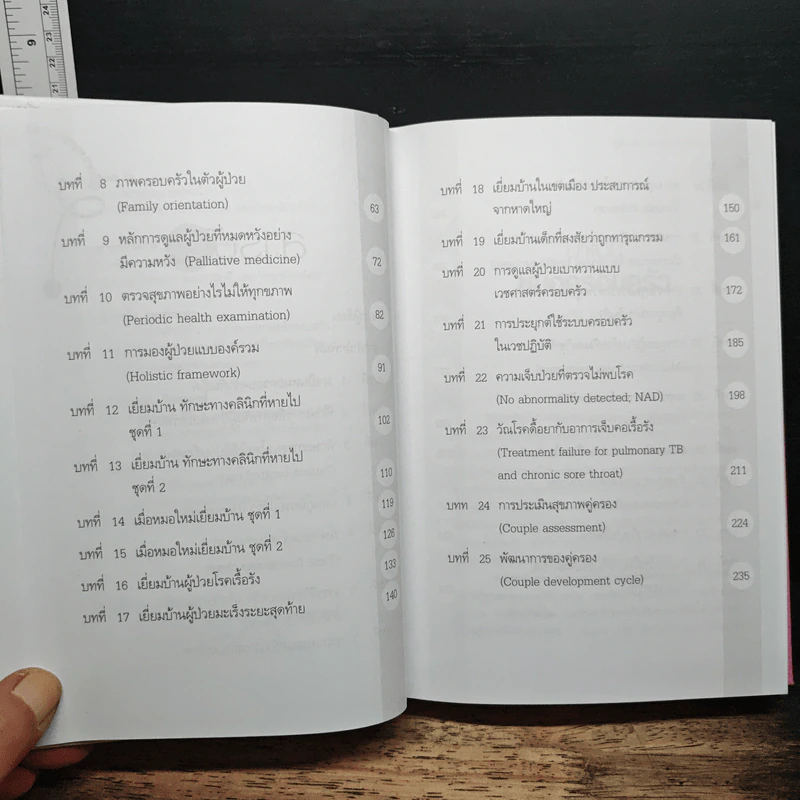 9
24
23
22
21
บทที่ 8 ภาพครอบครัวในตัวผู้ป่วย
(Family orientation) 63
บทที่ 9 หลักการดูแลผู้ป่วยที่หมดหวังอย่าง
มีความหวัง (Palliative medicine) 72
บทที่ 10 ตรวจสุขภาพอย่างไรไม่ให้ทุกขภาพ
(Periodic health examination) 82
บทที่ 11 การมองผู้ป่วยแบบองค์รวม
(Holistic framework) 91
บทที่ 12 เยี่ยมบ้าน ทักษะทางคลินิกที่หายไป
ชุดที่ 1 102
บทที่ 13 เยี่ยมบ้าน ทักษะทางคลินิกที่หายไป
ชุดที่ 2 110
บทที่ 14 เมื่อหมอใหม่เยี่ยมบ้าน ชุดที่ 1 119
บทที่ 15 เมื่อหมอใหม่เยี่ยมบ้าน ชุดที่ 2 126
บทที่ 16 เยี่ยมบ้านผู้ป่วยโรคเรื้อรัง 133
บทที่ 17 เยี่ยมบ้านผู้ป่วยมะเร็งระยะสุดท้าย 140
บทที่ 18 เยี่ยมบ้านในเขตเมือง ประสบการณ์
จากหาดใหญ่ 150
บทที่ 19 เยี่ยมบ้านเด็กที่สงสัยว่าถูกทารุณกรรม 161
บทที่ 20 การดูแลผู้ป่วยเบาหวานแบบ
เวชศาสตร์ครอบครัว 172
บทที่ 21 การประยุกต์ใช้ระบบครอบครัว
ในเวชปฏิบัติ 185
บทที่ 22 ความเจ็บป่วยที่ตรวจไม่พบโรค
(No abnormality detected; NAD) 198
บทที่ 23 วัณโรคดื้อยากับอาการเจ็บคอเรื้อรัง
(Treatment failure for pulmonary TB
and chronic sore throat) 211
บทท 24 การประเมินสุขภาพคู่ครอง
(Couple assessment) 224
บทที่ 25 พัฒนาการของคู่ครอง
(Couple development cycle) 235